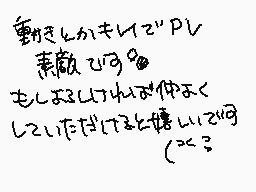 動きとかキレイでPV
素敵です
もしよろしければ仲よく
していただけると嬉しいです